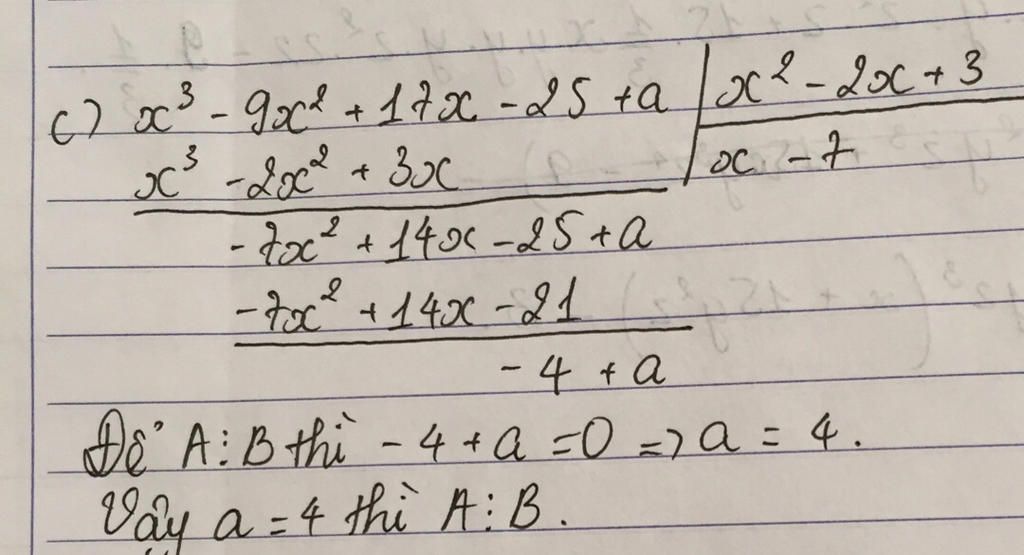 c) x³ - 9x² + 17x - 25 + a | x² - 2x + 3
x³ - 2x² + 3x | x - 7
-7x² + 14x - 25 + a
-7x² + 14x - 21
- 4 + a
Để A ⋮ B thì - 4 + a = 0 => a = 4.
Vậy a = 4 thì A ⋮ B.